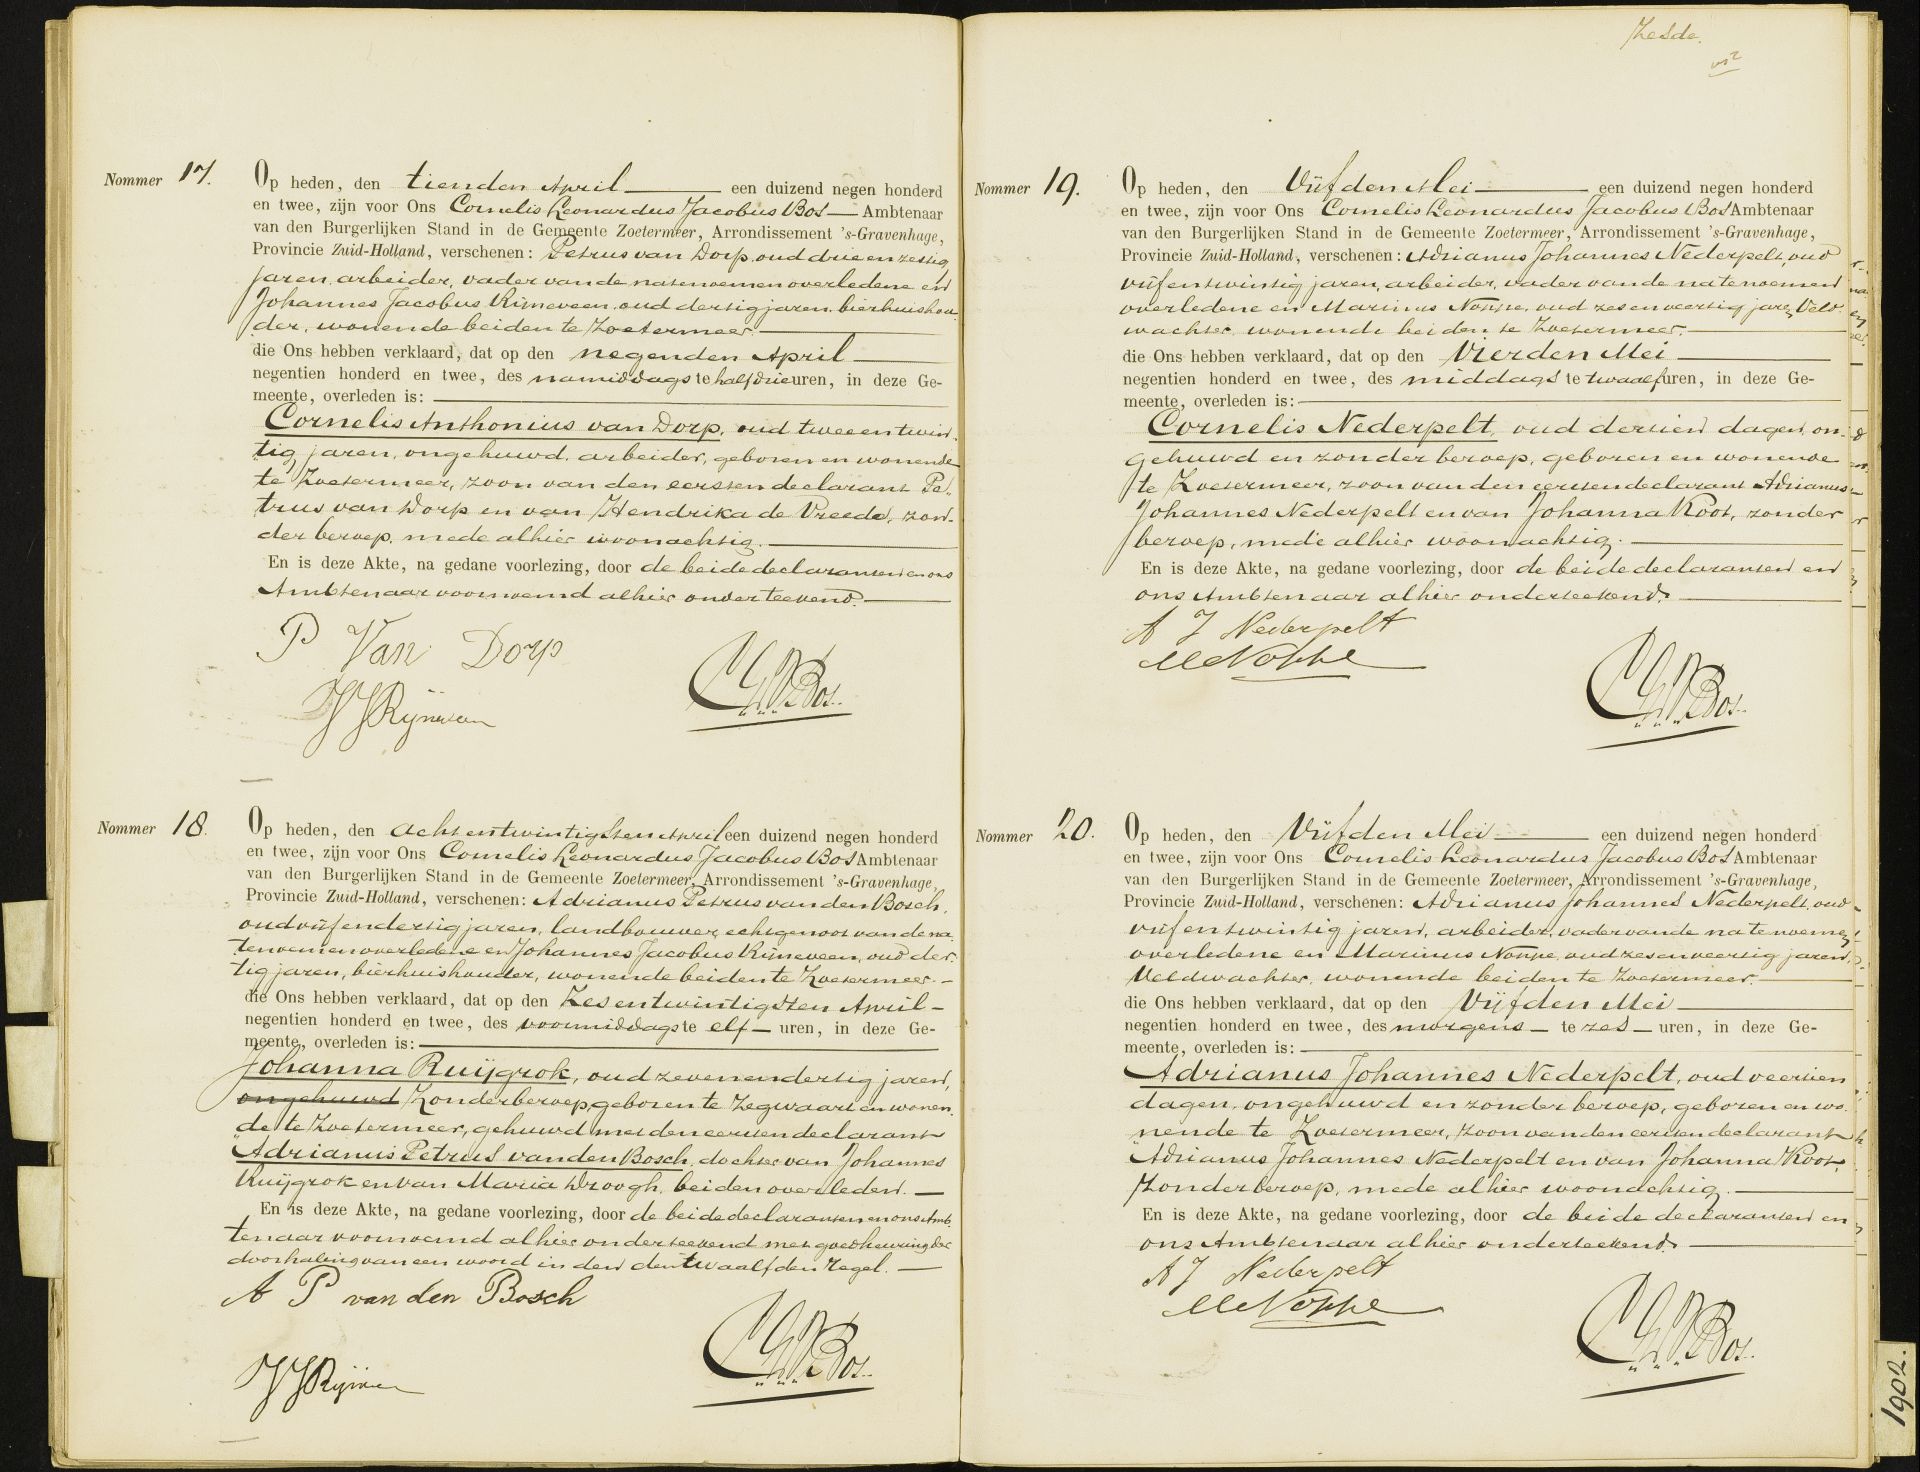 Nommer 17.
Op heden, den tienden April een duizend negen honderd
en twee, zijn voor Ons Cornelis Leonardus Jacobus Bos Ambtenaar
van den Burgerlijken Stand in de Gemeente Zoetermeer, Arrondissement 's-Gravenhage,
Provincie Zuid-Holland, verschenen: Petrus van Dorp, oud drie en zestig
jaren, arbeider, vader van de natenoemen overledene en
Johannes Jacobus Rijneveen, oud dertig jaren, bierhuishou
der, wonende beiden te Zoetermeer
die Ons hebben verklaard, dat op den negenden April
negentien honderd en twee, des namiddags te half drie uren, in deze Ge-
meente, overleden is:
Cornelis Anthonius van Dorp, oud twee en twin-
tig jaren, ongehuwd, arbeider, geboren en wonende
te Zoetermeer, zoon van den eersten declarant Pe-
trus van Dorp en van Hendrika de Vreede, zon-
der beroep, mede alhier woonachtig.
En is deze Akte, na gedane voorlezing, door de beide declaranten en ons
Ambtenaar voornoemd alhier onderteekend.
P Van Dorp
JJRijneveen
CLJBos
Nommer 18.
Op heden, den acht en twintigsten April een duizend negen honderd
en twee, zijn voor Ons Cornelis Leonardus Jacobus Bos Ambtenaar
van den Burgerlijken Stand in de Gemeente Zoetermeer, Arrondissement 's-Gravenhage,
Provincie Zuid-Holland, verschenen: Adrianus Petrus van den Bosch,
oud vijf en dertig jaren, landbouwer, echtgenoot van de na
tenoemen overledene en Johannes Jacobus Rijneveen, oud der-
tig jaren, bierhuishouder, wonende beiden te Zoetermeer
die Ons hebben verklaard, dat op den Zes en twintigsten April
negentien honderd en twee, des voormiddags te elf uren, in deze Ge-
meente, overleden is:
Johanna Ruijgrok, oud zeven en dertig jaren,
ongehuwd Zonder beroep, geboren te Zegwaart en wonen-
de te Zoetermeer, gehuwd met den eersten declarant
Adrianus Petrus van den Bosch, dochter van Johannes
Ruijgrok en van Maria Droogh, beiden overleden.
En is deze Akte, na gedane voorlezing, door de beide declaranten en ons Amb-
tenaar voornoemd alhier onderteekend met goedkeuring der
doorhaling van een woord in den den twaalfden regel.
A P van den Bosch
JJRijneveen
CLJBos
Zesde.
Nommer 19.
Op heden, den Vijfden Mei een duizend negen honderd
en twee, zijn voor Ons Cornelis Leonardus Jacobus Bos Ambtenaar
van den Burgerlijken Stand in de Gemeente Zoetermeer, Arrondissement 's-Gravenhage,
Provincie Zuid-Holland, verschenen: Adrianus Johannes Nederpelt, oud
vijf en twintig jaren, arbeider, vader van de na te noemen
overledene en Marinus Noppe, oud zes en veertig jaren, Veld-
wachter, wonende beiden te Zoetermeer.
die Ons hebben verklaard, dat op den Vierden Mei
negentien honderd en twee, des middags te twaalf uren, in deze Ge-
meente, overleden is:
Cornelis Nederpelt, oud dertien dagen, on-
gehuwd en zonder beroep, geboren en wonende
te Zoetermeer, zoon van den eersten declarant Adrianus
Johannes Nederpelt en van Johanna Koot, zonder
beroep, mede alhier woonachtig.
En is deze Akte, na gedane voorlezing, door de beide declaranten en
ons Ambtenaar alhier onderteekend.
A J Nederpelt
M Noppe
CLJBos
Nommer 20.
Op heden, den Vijfden Mei een duizend negen honderd
en twee, zijn voor Ons Cornelis Leonardus Jacobus Bos Ambtenaar
van den Burgerlijken Stand in de Gemeente Zoetermeer, Arrondissement 's-Gravenhage,
Provincie Zuid-Holland, verschenen: Adrianus Johannes Nederpelt, oud
vijf en twintig jaren, arbeider, vader van de na te noemen
overledene en Marinus Noppe, oud zes en veertig jaren,
Veldwachter, wonende beiden te Zoetermeer.
die Ons hebben verklaard, dat op den Vijfden Mei
negentien honderd en twee, des morgens te zes uren, in deze Ge-
meente, overleden is:
Adrianus Johannes Nederpelt, oud veertien
dagen, ongehuwd en zonder beroep, geboren en wo-
nende te Zoetermeer, zoon van den eersten declarant
Adrianus Johannes Nederpelt en van Johanna Koot,
zonder beroep, mede alhier woonachtig.
En is deze Akte, na gedane voorlezing, door de beide declaranten en
ons Ambtenaar alhier onderteekend.
A J Nederpelt
M Noppe
CLJBos
1902.